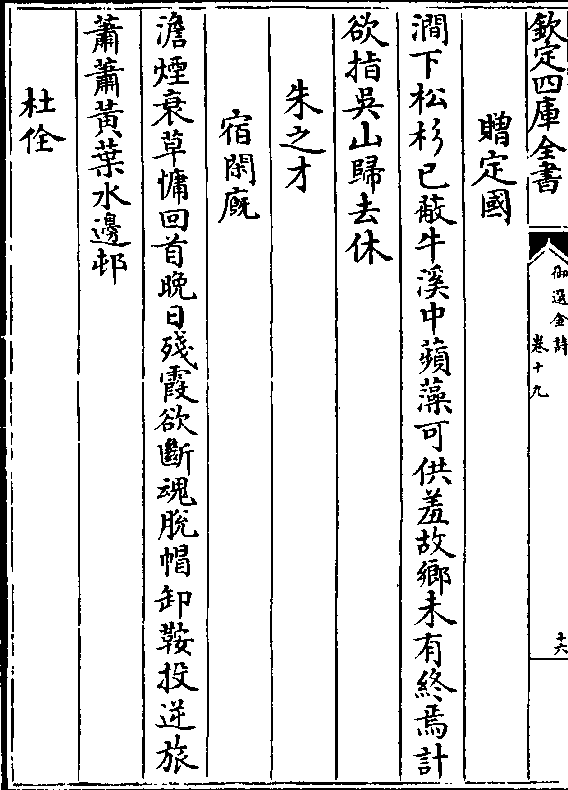 欽定四庫全書
御選金詩
卷十九
十六
贈定國
澗下松杉已蔽牛溪中蘋藻可供羞故鄉未有終焉計
欲指吳山歸去休
朱之才
宿閑廐
澹煙衰草慵回首晚日殘霞欲斷魂脫帽卸鞍投逆旅
蕭蕭黃葉水邊邨
杜佺